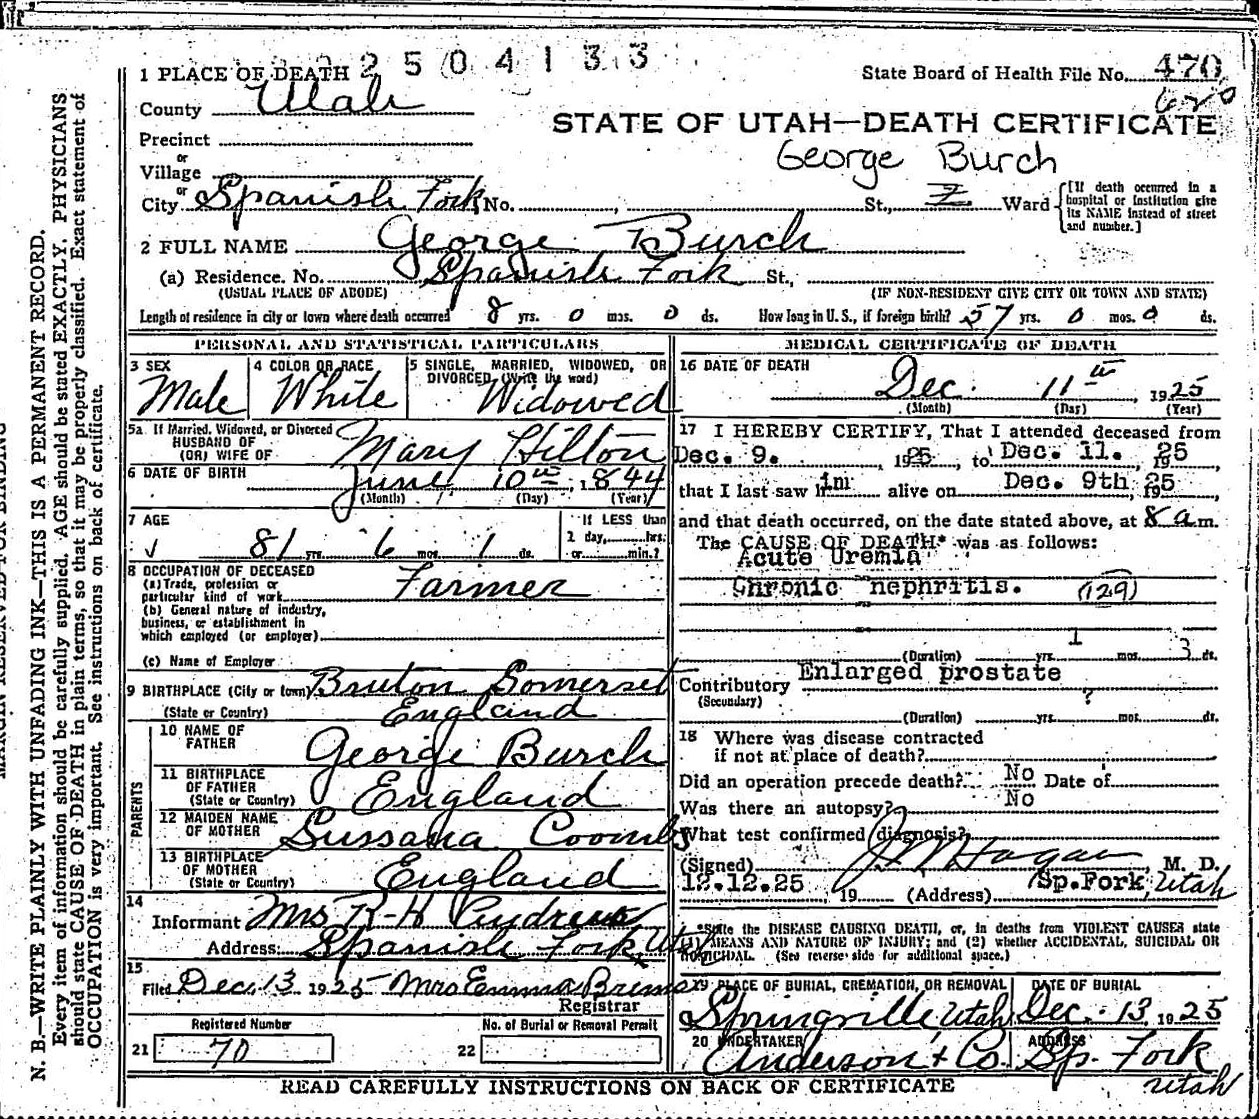 2504133
1 PLACE OF DEATH
State Board of Health File No. 470
620
County Utah
STATE OF UTAH—DEATH CERTIFICATE
George Burch
Precinct
or
Village
or
City Spanish Fork, No. , St., 2 Ward
[If death occurred in a hospital or institution give its NAME instead of street and number.]
2 FULL NAME George Burch
(a) Residence. No. Spanish Fork St.,
(USUAL PLACE OF ABODE) (IF NON-RESIDENT GIVE CITY OR TOWN AND STATE)
Length of residence in city or town where death occurred 8 yrs. 0 mos. 0 ds. How long in U.S., if foreign birth? 57 yrs. 0 mos. 0 ds.
PERSONAL AND STATISTICAL PARTICULARS
3 SEX Male
4 COLOR OR RACE White
5 SINGLE, MARRIED, WIDOWED, OR DIVORCED (Write the word) Widowed
5a If Married, Widowed, or Divorced
HUSBAND OF
(OR) WIFE OF Mary Hilton
6 DATE OF BIRTH June 10th, 1844
(Month) (Day) (Year)
7 AGE 81 yrs 6 mos. 1 ds.
If LESS than
1 day, hrs.
or min.?
8 OCCUPATION OF DECEASED
(a) Trade, profession or
particular kind of work Farmer
(b) General nature of industry,
business, or establishment in
which employed (or employer)
(c) Name of Employer
9 BIRTHPLACE (City or town) Bruton Somerset
(State or Country) England
PARENTS
10 NAME OF
FATHER George Burch
11 BIRTHPLACE
OF FATHER
(State or Country) England
12 MAIDEN NAME
OF MOTHER Sussana Coombs
13 BIRTHPLACE
OF MOTHER
(State or Country) England
14
Informant Mrs R-H
Address: Spanish Fork, Utah
15
Filed Dec. 13 1925 Mrs Emma
Registrar
Registered Number
21 70
No. of Burial or Removal Permit
22
MEDICAL CERTIFICATE OF DEATH
16 DATE OF DEATH
Dec. 11th, 1925
(Month) (Day) (Year)
17 I HEREBY CERTIFY, That I attended deceased from
Dec. 9. , 1925, to Dec. 11. 1925
that I last saw him alive on Dec. 9th, 1925,
and that death occurred, on the date stated above, at 8 a m.
The CAUSE OF DEATH* was as follows:
Acute Uremia
Chronic nephritis. (129)
(Duration) yrs. 1 mos. 3 ds.
Contributory Enlarged prostate
(Secondary) ?
(Duration) yrs. mos. ds.
18 Where was disease contracted
if not at place of death?
Did an operation precede death? No Date of
Was there an autopsy? No
What test confirmed diagnosis?
(Signed) J. M Hagan, M. D.
12.12.25, 19 (Address) Sp.Fork, Utah
*State the DISEASE CAUSING DEATH, or, in deaths from VIOLENT CAUSES state
(1) MEANS AND NATURE OF INJURY; and (2) whether ACCIDENTAL, SUICIDAL OR
HOMICIDAL. (See reverse side for additional space.)
19 PLACE OF BURIAL, CREMATION, OR REMOVAL
Springville Utah
DATE OF BURIAL
Dec. 13, 1925
20 UNDERTAKER
Anderson & Co.
ADDRESS
Sp. Fork
Utah
READ CAREFULLY INSTRUCTIONS ON BACK OF CERTIFICATE
MARGIN RESERVED FOR BINDING
N. B.—WRITE PLAINLY WITH UNFADING INK—THIS IS A PERMANENT RECORD.
Every item of information should be carefully supplied. AGE should be stated EXACTLY. PHYSICIANS
should state CAUSE OF DEATH in plain terms, so that it may be properly classified. Exact statement of
OCCUPATION is very important. See instructions on back of certificate.